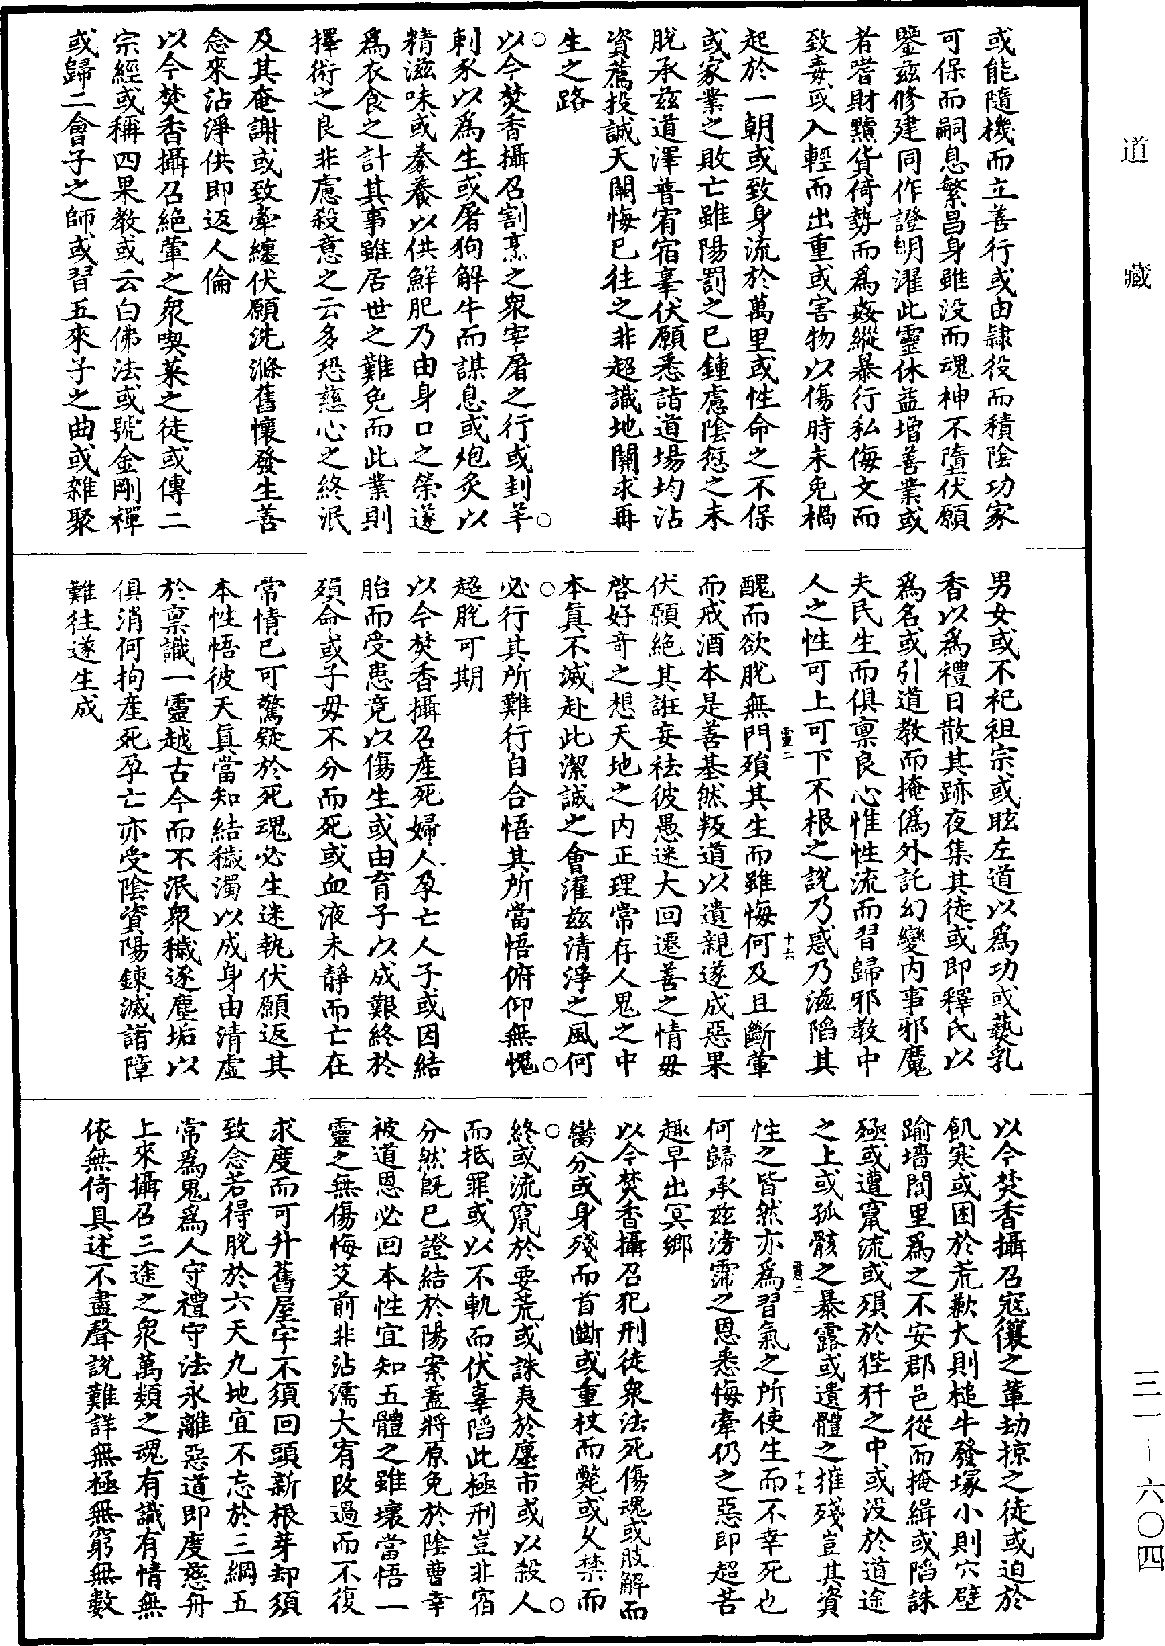 道藏
三一—六〇四
或能隨機而立善行或由隸役而積陰功家
可保而嗣息繁昌身雖没而魂神不墮伏願
鑒兹修建同作證明濯此靈休益增善業或
者嗜財黷貨倚勢而爲姦縱暴行私侮文而
致毒或入輕而出重或害物以傷時未免禍
起於一朝或致身流於萬里或性命之不保
或家業之敗亡雖陽罰之已鍾慮陰愆之未
脱承兹道澤普宥宿辜伏願悉詣道場均沾
資薦投誠天闕悔已往之非超識地關求再
生之路
○以今焚香攝召割烹之衆宰屠之行或刲羊○
刺豕以爲生或屠狗解牛而謀息或炮炙以
精滋味或豢養以供鮮肥乃由身口之榮遂
爲衣食之計其事雖居世之難免而此業則
擇術之良非慮殺意之云多恐慈心之終泯
及其奄謝或致牽纏伏願洗滌舊懷發生善
念來沾淨供即返人倫
以今焚香攝召絶葷之衆喫菜之徒或傳二
宗經或稱四果教或云白佛法或號金剛禪
或歸二會子之師或習五來子之曲或雜聚
男女或不祀祖宗或眩左道以爲功或爇乳
香以爲禮日散其跡夜集其徒或即釋氏以
爲名或引道教而掩僞外託幻變内事邪魔
夫民生而俱禀良心惟性流而習歸邪教中
人之性可上可下不根之說乃惑乃滋陷其
靈二
十六
醜而欲脱無門殞其生而雖悔何及且斷葷
而戒酒本是善基然叛道以遺親遂成惡果
伏願絶其誑妄祛彼愚迷大回遷善之情毋
啓好奇之想天地之内正理常存人鬼之中
本真不滅赴此潔誠之會濯兹清淨之風何
○必行其所難行自合悟其所當悟俯仰無愧○
超脱可期
以今焚香攝召産死婦人孕亡人子或因結
胎而受患竟以傷生或由育子以成艱終於
殞命或子母不分而死或血液未靜而亡在
常情已可驚疑於死魂必生迷執伏願返其
本性悟彼天真當知結穢濁以成身由清虛
於禀識一靈越古今而不泯衆穢逐塵垢以
俱消何拘産死孕亡亦受陰資陽鍊滅諸障
難往遂生成
以今焚香攝召寇攘之輩劫掠之徒或迫於
飢寒或困於荒歉大則槌牛發塚小則穴壁
踰墻閭里爲之不安郡邑從而掩緝或陷誅
殛或遭竄流或殞於狴犴之中或没於道途
之上或孤骸之暴露或遺體之摧殘豈其資
靈二
十七
性之皆然亦爲習氣之所使生而不幸死也
何歸承兹滂霈之恩悉悔牽仍之惡即超苦
趣早出冥鄉
以今焚香攝召犯刑徒衆法死傷魂或肢解而
臠分或身殘而首斷或重杖而斃或久禁而
○終或流竄於要荒或誅夷於廛市或以殺人○
而抵罪或以不軌而伏辜陷此極刑豈非宿
分然既已證結於陽案蓋將原免於陰曹幸
被道恩必回本性宜知五體之雖壞當悟一
靈之無傷悔艾前非沾濡大宥改過而不復
求度而可升舊屋宇不須回頭新根芽却須
致念若得脱於六天九地宜不忘於三綱五
常爲鬼爲人守禮守法永離惡道即度慈舟
上來攝召三途之衆萬類之魂有識有情無
依無倚具述不盡聲說難詳無極無窮無數